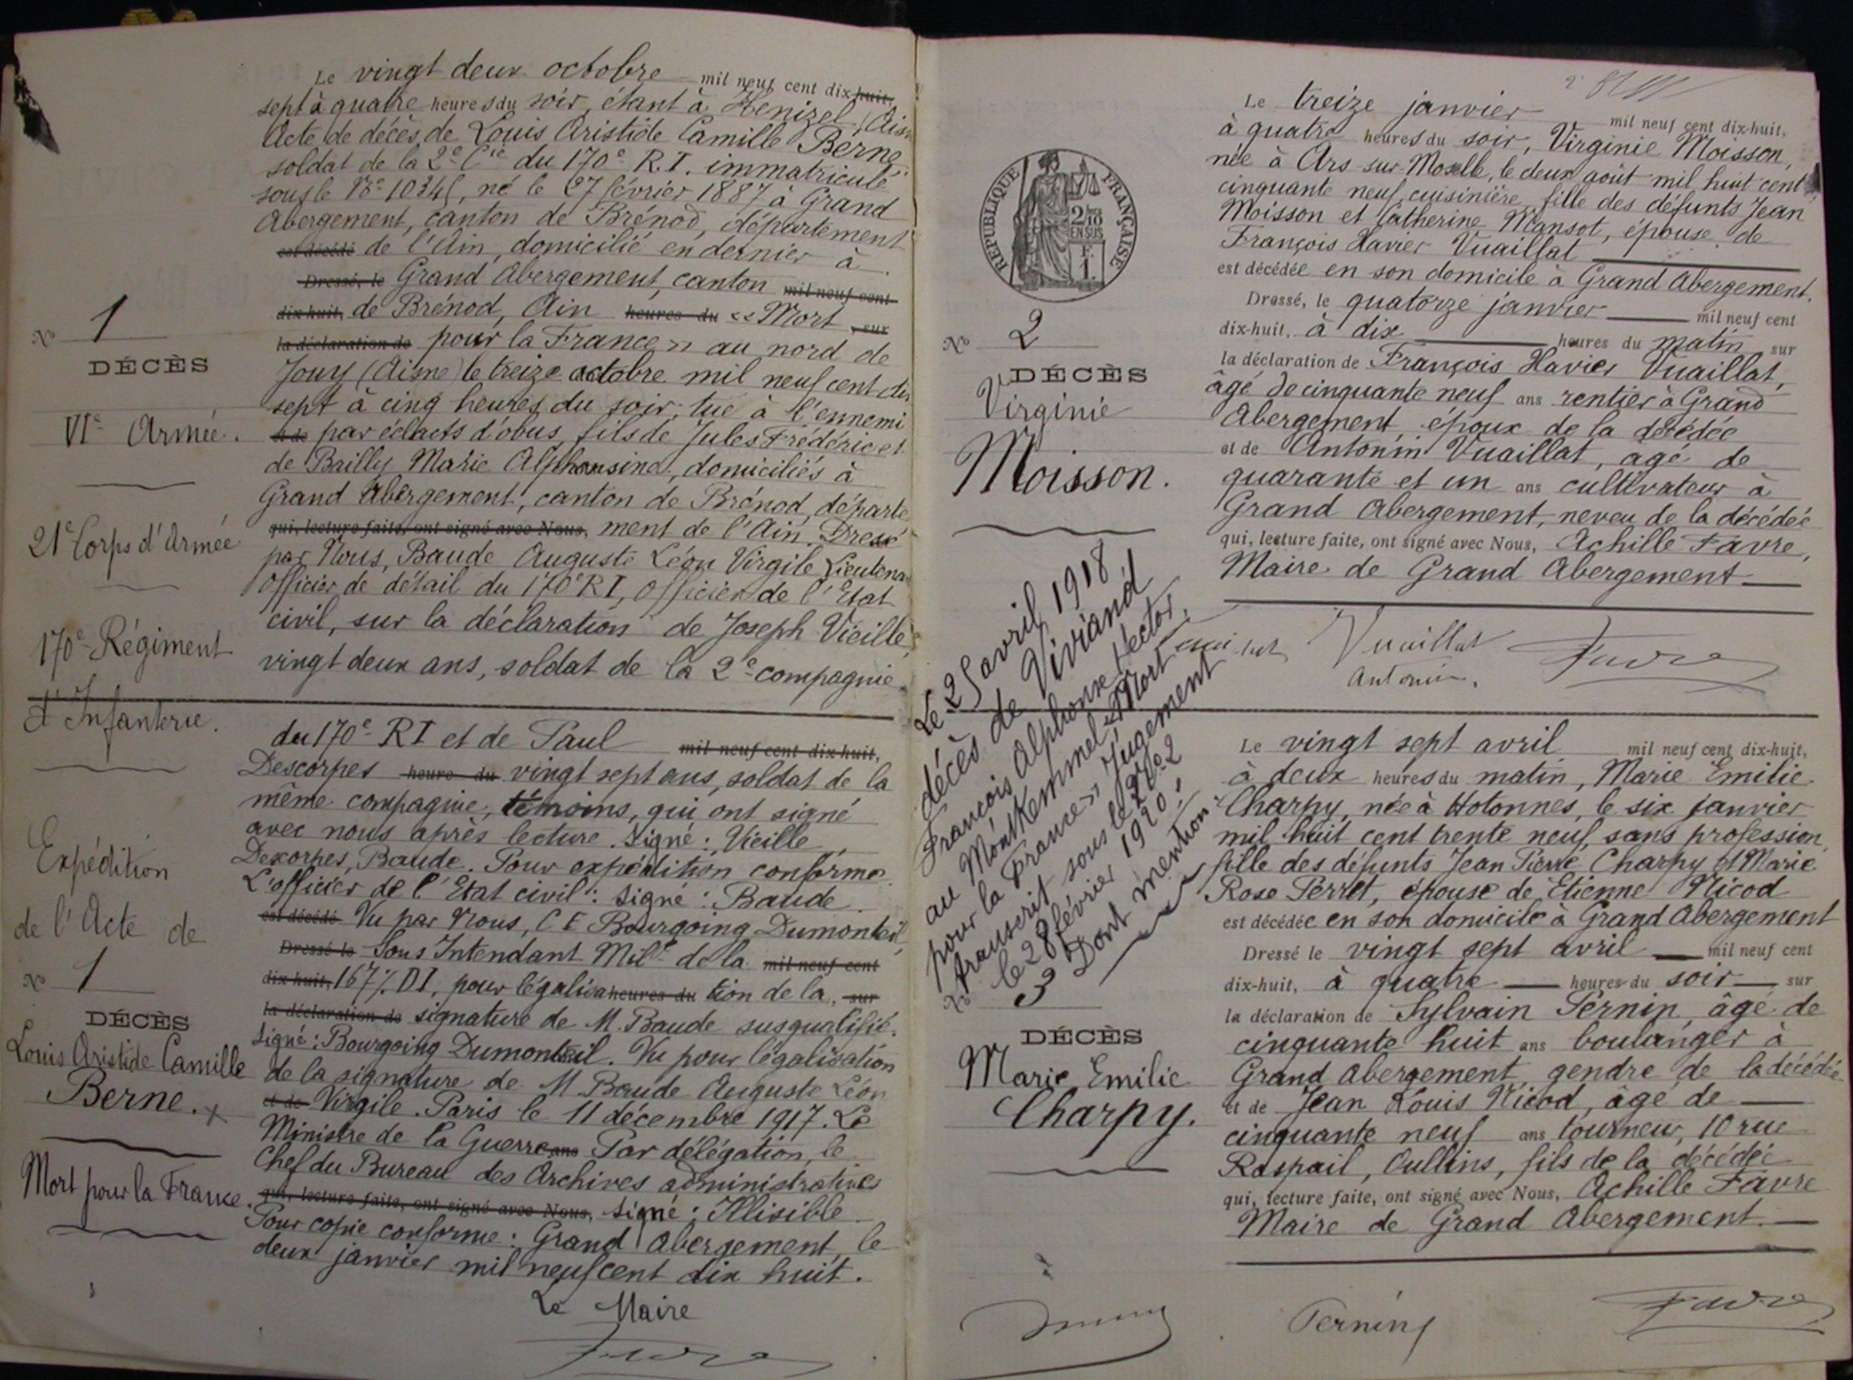 Le vingt deux octobre mil neuf cent dix-huit,
sept à quatre heures du soir, étant à Venizel (Aisne
Acte de décès de Louis Aristide Camille Berne
soldat de la 2e Cie du 170e R.I. immatriculé
sous le No 10345, né le 27 février 1887 à Grand
Abergement, canton de Brénod, département
est décédé de l'Ain, domicilié en dernier à
Dressé, le Grand Abergement, canton mil neuf cent
dix-huit, de Brénod, Ain heures du « Mort , sur
la déclaration de pour la France » au nord de
Jouy (Aisne) le treize octobre mil neuf cent dix
sept à cinq heures du soir, tué à l'ennemi
et de par éclats d'obus, fils de Jules Frédéric et
de Bailly Marie Alphonsine, domiciliés à
Grand Abergement, canton de Brénod, départe
qui, lecture faite, ont signé avec Nous, ment de l'Ain. Dressé
par Nous, Baude Auguste Léon Virgile Lieutenant
Officier de détail du 170e RI, Officier de l'Etat
civil, sur la déclaration de Joseph Vieille,
vingt deux ans, soldat de la 2e compagnie
No 1
DÉCÈS
VIe Armée.
21e Corps d'Armée
170e Régiment
d'Infanterie.
du 170e RI et de Paul mil neuf cent dix-huit,
Descorpes heure du vingt sept ans, soldat de la
même compagnie, témoins, qui ont signé
avec nous après lecture. Signé : Vieille
Descorpes, Baude. Pour expédition conforme
L'officier de l'Etat civil : Signé : Baude.
est décédé Vu par Nous, C E Bourgoing Dumonteil,
Dressé le Sous Intendant Milre de la mil neuf cent
dix-huit, 167e D I, pour légalisa heures du tion de la, sur
la déclaration de signature de M. Baude susqualifié.
Signé : Bourgoing Dumonteil. Vu pour légalisation
de la signature de M Baude Auguste Léon
et de Virgile. Paris le 11 décembre 1917. Le
Ministre de la Guerre ans Par délégation, le
Chef du Bureau des Archives administratives
qui, lecture faite, ont signé avec Nous, Signé : Illisible.
Pour copie conforme : Grand Abergement, le
deux janvier mil neuf cent dix huit.
Le Maire
Favre
Expédition
de l'Acte de
No 1
DÉCÈS
Louis Aristide Camille
Berne. x
Mort pour la France.
RÉPUBLIQUE FRANÇAISE
2/10 EN SUS
1 F.
No 2
DÉCÈS
Virginie
Moisson.
Le treize janvier mil neuf cent dix-huit,
à quatre heures du soir, Virginie Moisson,
née à Ars sur Moselle, le deux août mil huit cent
cinquante neuf, cuisinière, fille des défunts Jean
Moisson et Catherine Mansot, épouse de
François Xavier Vuaillat
est décédée en son domicile à Grand Abergement.
Dressé, le quatorze janvier mil neuf cent
dix-huit, à dix heures du matin sur
la déclaration de François Xavier Vuaillat,
âgé de cinquante neuf ans rentier à Grand
Abergement, époux de la décédée
et de Antonin Vuaillat, âgé de
quarante et un ans cultivateur à
Grand Abergement, neveu de la décédée
qui, lecture faite, ont signé avec Nous, Achille Favre,
Maire de Grand Abergement
Vuaillat
Antonin.
Favre
Le 25 avril 1918
décès de Viviand
François Alphonse Hector,
au Mont Kemmel « Mort
pour la France » Jugement
transcrit sous le No 2
le 28 février 1920.
Dont mention :
No 3
DÉCÈS
Marie Emilie
Charpy.
Le vingt sept avril mil neuf cent dix-huit,
à deux heures du matin, Marie Emilie
Charpy, née à Hotonnes, le six janvier
mil huit cent trente neuf, sans profession,
fille des défunts Jean Pierre Charpy et Marie
Rose Perret, épouse de Etienne Nicod
est décédée en son domicile à Grand Abergement
Dressé le vingt sept avril mil neuf cent
dix-huit, à quatre heures du soir, sur
la déclaration de Sylvain Pernin, âgé de
cinquante huit ans boulanger à
Grand Abergement, gendre de la décédée
et de Jean Louis Nicod, âgé de
cinquante neuf ans tourneur, 10 rue
Raspail, Oullins, fils de la décédée
qui, lecture faite, ont signé avec Nous, Achille Favre
Maire de Grand Abergement.
Pernin
Favre